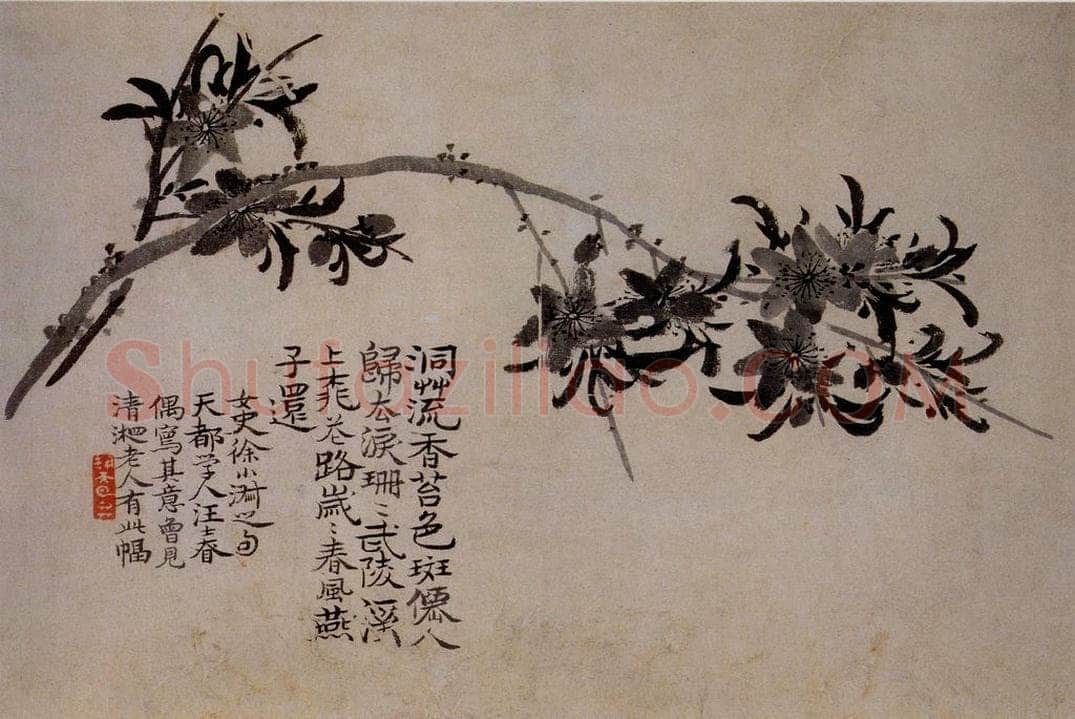 洞艸流香苔色斑僊人
歸去淚珊〻武陵溪
上桃花路歲〻春風燕
子還
女史徐小淑之句
天都学人汪士昚
偶寫其意曾見
清湘老人有此幅
Shufaziliao.COM